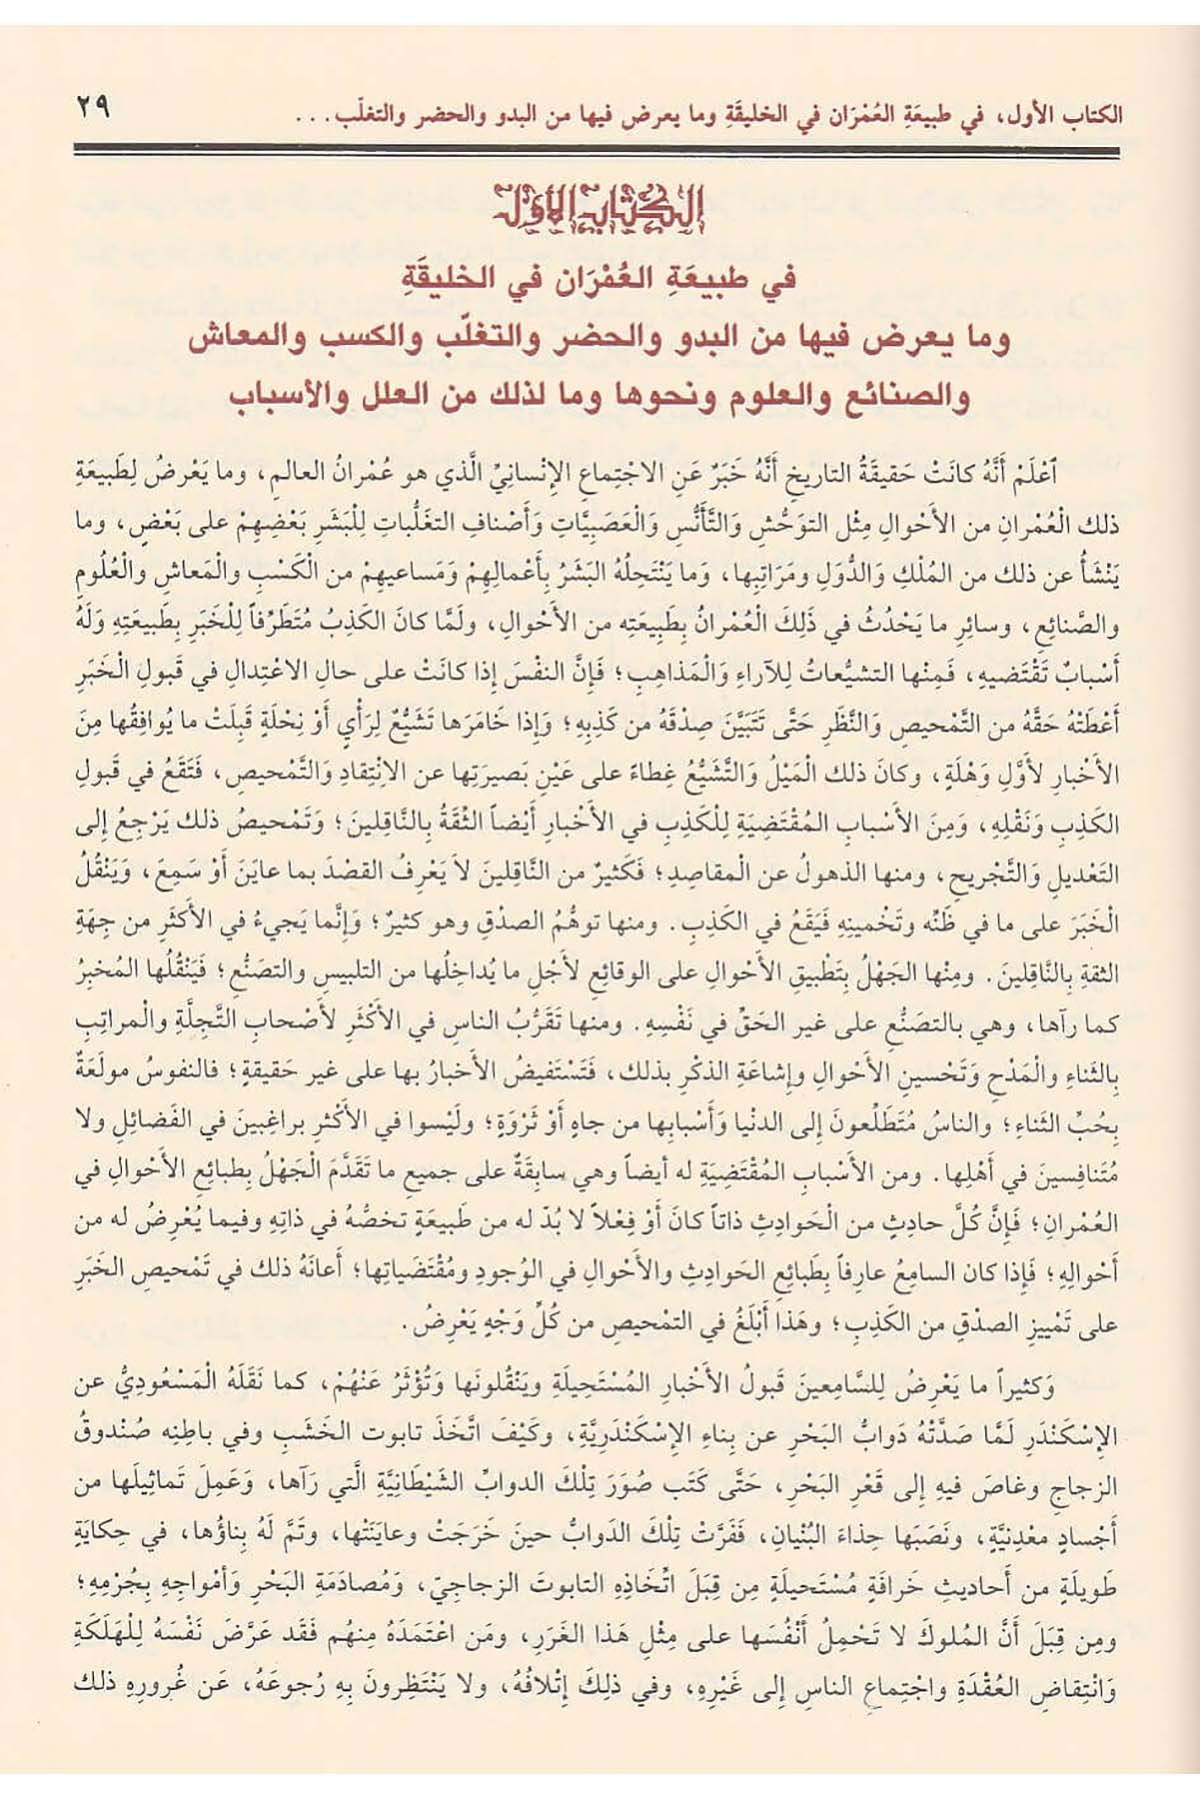 الكتاب الأول، في طبيعَةِ العُمْرَان في الخليقَةِ وما يعرض فيها من البدو والحضر والتغلّب...
٢٩
الكتاب الأول
في طبيعَةِ العُمْرَان في الخليقَةِ
وما يعرض فيها من البدو والحضر والتغلّب والكسب والمعاش
والصنائع والعلوم ونحوها وما لذلك من العلل والأسباب
ٱعْلَمْ أَنَّهُ كانَتْ حَقيقَةُ التاريخِ أَنَّهُ خَبَرٌ عَنِ الاجْتِماعِ الإِنْسانِيِّ الَّذي هو عُمْرانُ العالمِ، وما يَعْرِضُ لِطَبيعَةِ
ذلك الْعُمْرانِ من الأَحْوالِ مِثْل التوَحُّشِ وَالتَّأَنُّس وَالْعَصَبِيَّاتِ وَأَصْنافِ التغَلُّباتِ لِلْبَشَرِ بَعْضِهِمْ على بَعْضٍ، وما
يَنْشَأُ عن ذلك من المُلْكِ وَالدُّوَلِ ومَرَاتِبِها، وَما يَنْتَحِلُهُ البَشَرُ بِأَعْمالِهِمْ وَمَساعيهِمْ من الْكَسْبِ والْمَعاشِ والْعُلُومِ
والصَّنائِعِ، وسائِرِ ما يَحْدُثُ في ذَلِكَ الْعُمْرانُ بِطَبيعَتِه من الأَحْوالِ، ولَمَّا كانَ الكَذِبُ مُتَطَرِّفاً لِلْخَبَرِ بِطَبيعَتِهِ وَلَهُ
أَسْبابٌ تَقْتَضيهِ، فَمِنْها التشيُّعاتُ لِلآراءِ وَالْمَذاهِبِ؛ فَإِنَّ النفْسَ إِذا كانَتْ على حالِ الاعْتِدالِ في قَبولِ الْخَبَرِ
أَعْطَتْهُ حَقَّهُ من التَّمْحيصِ وَالنَّظَرِ حَتَّى تَتَبَيَّنَ صِدْقَهُ من كَذِبِهِ؛ وَإِذا خامَرَها تَشَيُّعٌ لِرَأْيٍ أَوْ نِحْلَةٍ قَبِلَتْ ما يُوافِقُها مِنَ
الأَخْبارِ لأَوَّلِ وَهْلَةٍ، وكانَ ذلك الْمَيْلُ وَالتَّشَيُّعُ غِطاءً على عَيْنِ بَصيرَتِها عن الانْتِقادِ وَالتَّمْحيصِ، فَتَقَعُ في قَبولِ
الكَذِبِ وَنَقْلِهِ، وَمِنَ الأَسْبابِ المُقْتَضِيَةِ لِلْكَذِبِ في الأَخْبارِ أَيْضاً الثِّقَةُ بِالنَّاقِلينَ؛ وَتَمْحيصُ ذلك يَرْجِعُ إلى
التَعْديلِ وَالتَّجْريحِ، ومنها الذهولُ عن الْمقاصِدِ؛ فَكَثيرٌ من النَّاقِلينَ لاَ يَعْرِفُ القصْدَ بما عايَنَ أَوْ سَمِعَ، وَيَنْقُلُ
الْخَبَرَ على ما في ظَنِّه وتَخْمينِهِ فَيَقَعُ في الكَذِبِ. ومنها توهُّمُ الصدْقِ وهو كثيرٌ؛ وَإِنَّما يَجيءُ في الأَكثَرِ من جِهَةِ
الثقةِ بِالنَّاقِلينَ. ومِنْها الجَهْلُ بِتَطْبيقِ الأَحْوالِ على الوقائِعِ لأَجْلِ ما يُداخِلُها من التلبيسِ والتصَنُّعِ؛ فَيَنْقُلُها المُخبِرُ
كما رآها، وهي بالتصَنُّعِ على غير الحَقِّ في نَفْسِهِ. ومنها تَقَرُّبُ الناسِ في الأَكْثَرِ لأَصْحابِ التَّجِلَّةِ والْمراتِبِ
بِالثَناءِ والْمَدْحِ وَتَحْسينِ الأَحْوالِ وإِشاعَةِ الذكْرِ بذلك، فَتَسْتَفيضُ الأَخْبارُ بها على غير حَقيقةٍ؛ فالنفوسُ مولَعَةٌ
بِحُبِّ الثَناءِ؛ والناسُ مُتَطَلِّعونَ إِلى الدنْيا وَأَسْبابِها من جاهٍ أَوْ ثَرْوَةٍ؛ ولَيْسوا في الأَكْثَرِ براغِبينَ في الفَضائِلِ ولا
مُتَنافِسينَ في أَهْلِها. ومن الأَسْبابِ المُقْتَضِيَةِ له أيضاً وهي سابِقَةٌ على جميعِ ما تَقَدَّمَ الْجَهْلُ بِطبائِعِ الأَحْوالِ في
العُمْرانِ؛ فَإِنَّ كُلَّ حادِثٍ من الْحَوادِثِ ذاتاً كانَ أَوْ فِعْلاً لا بُدّ له من طَبيعَةٍ تخصُّهُ في ذاتِهِ وفيما يُعْرِضُ له من
أَحْوالِهِ؛ فَإِذا كان السامِعُ عارِفاً بِطَبائِعِ الحَوادِثِ والأَحْوالِ في الوُجودِ ومُقْتَضَياتِها؛ أَعانَهُ ذلك في تَمْحيصِ الخَبَرِ
على تَمْييزِ الصدْقِ من الكَذِبِ؛ وهَذا أَبْلَغُ في التمْحيصِ من كُلِّ وَجْهٍ يَعْرِضُ.
وَكثيراً ما يَعْرِضُ لِلسَّامِعينَ قَبولُ الأَخْبارِ المُسْتَحِيلَةِ وَيَنْقُلونَها وَتُؤْثَرُ عَنْهُمْ، كما نَقَلَهُ الْمَسْعُودِيُّ عن
الإِسْكَنْدَرِ لَمَّا صَدَّتْهُ دَوابُّ البَحْرِ عن بِناءِ الإِسْكَنْدَرِيَّةِ، وكَيْفَ اتَّخَذَ تابوت الخَشَبِ وفي باطِنِه صُنْدوقُ
الزجاجِ وغاصَ فيهِ إلى قَعْرِ البَحْرِ، حَتَّى كَتَب صُوَرَ تِلْكَ الدوابِّ الشَيْطانِيَّةِ الَّتي رَآها، وَعَمِلَ تَماثيلَها من
أَجْسادٍ معْدِنِيَّةٍ، ونَصَبَها حِذاءَ البُنْيانِ، فَفَرَّتْ تِلْكَ الدَوابُّ حينَ خَرَجَتْ وعايَنَتْها، وتَمَّ لَهُ بِناؤُها، في حِكايَةٍ
طَويلَةٍ من أَحاديثِ خَرافَةٍ مُسْتَحيلَةٍ مِن قِبَلَ اتِّخَاذِهِ التابوتَ الزجاجيّ، وَمُصادَمَةِ البَحْرِ وَأمْواجِهِ بِجُرْمِهِ؛
ومِن قِبَلَ أَنَّ المُلوكَ لا تَحْمِلُ أَنْفُسَها على مِثْلِ هَذا الغَرَرِ، ومَن اعْتَمَدَهُ مِنهُم فَقَد عَرَّضَ نَفْسَهُ لِلْهَلَكَةِ
وَانْتِقاضِ العُقْدَةِ واجْتِماعِ الناسِ إِلى غَيْرِهِ، وفي ذلِكَ إِتْلافُهُ، ولا يَنْتَظِرونَ بِهِ رُجوعَهُ، عَن غُرورِهِ ذلك